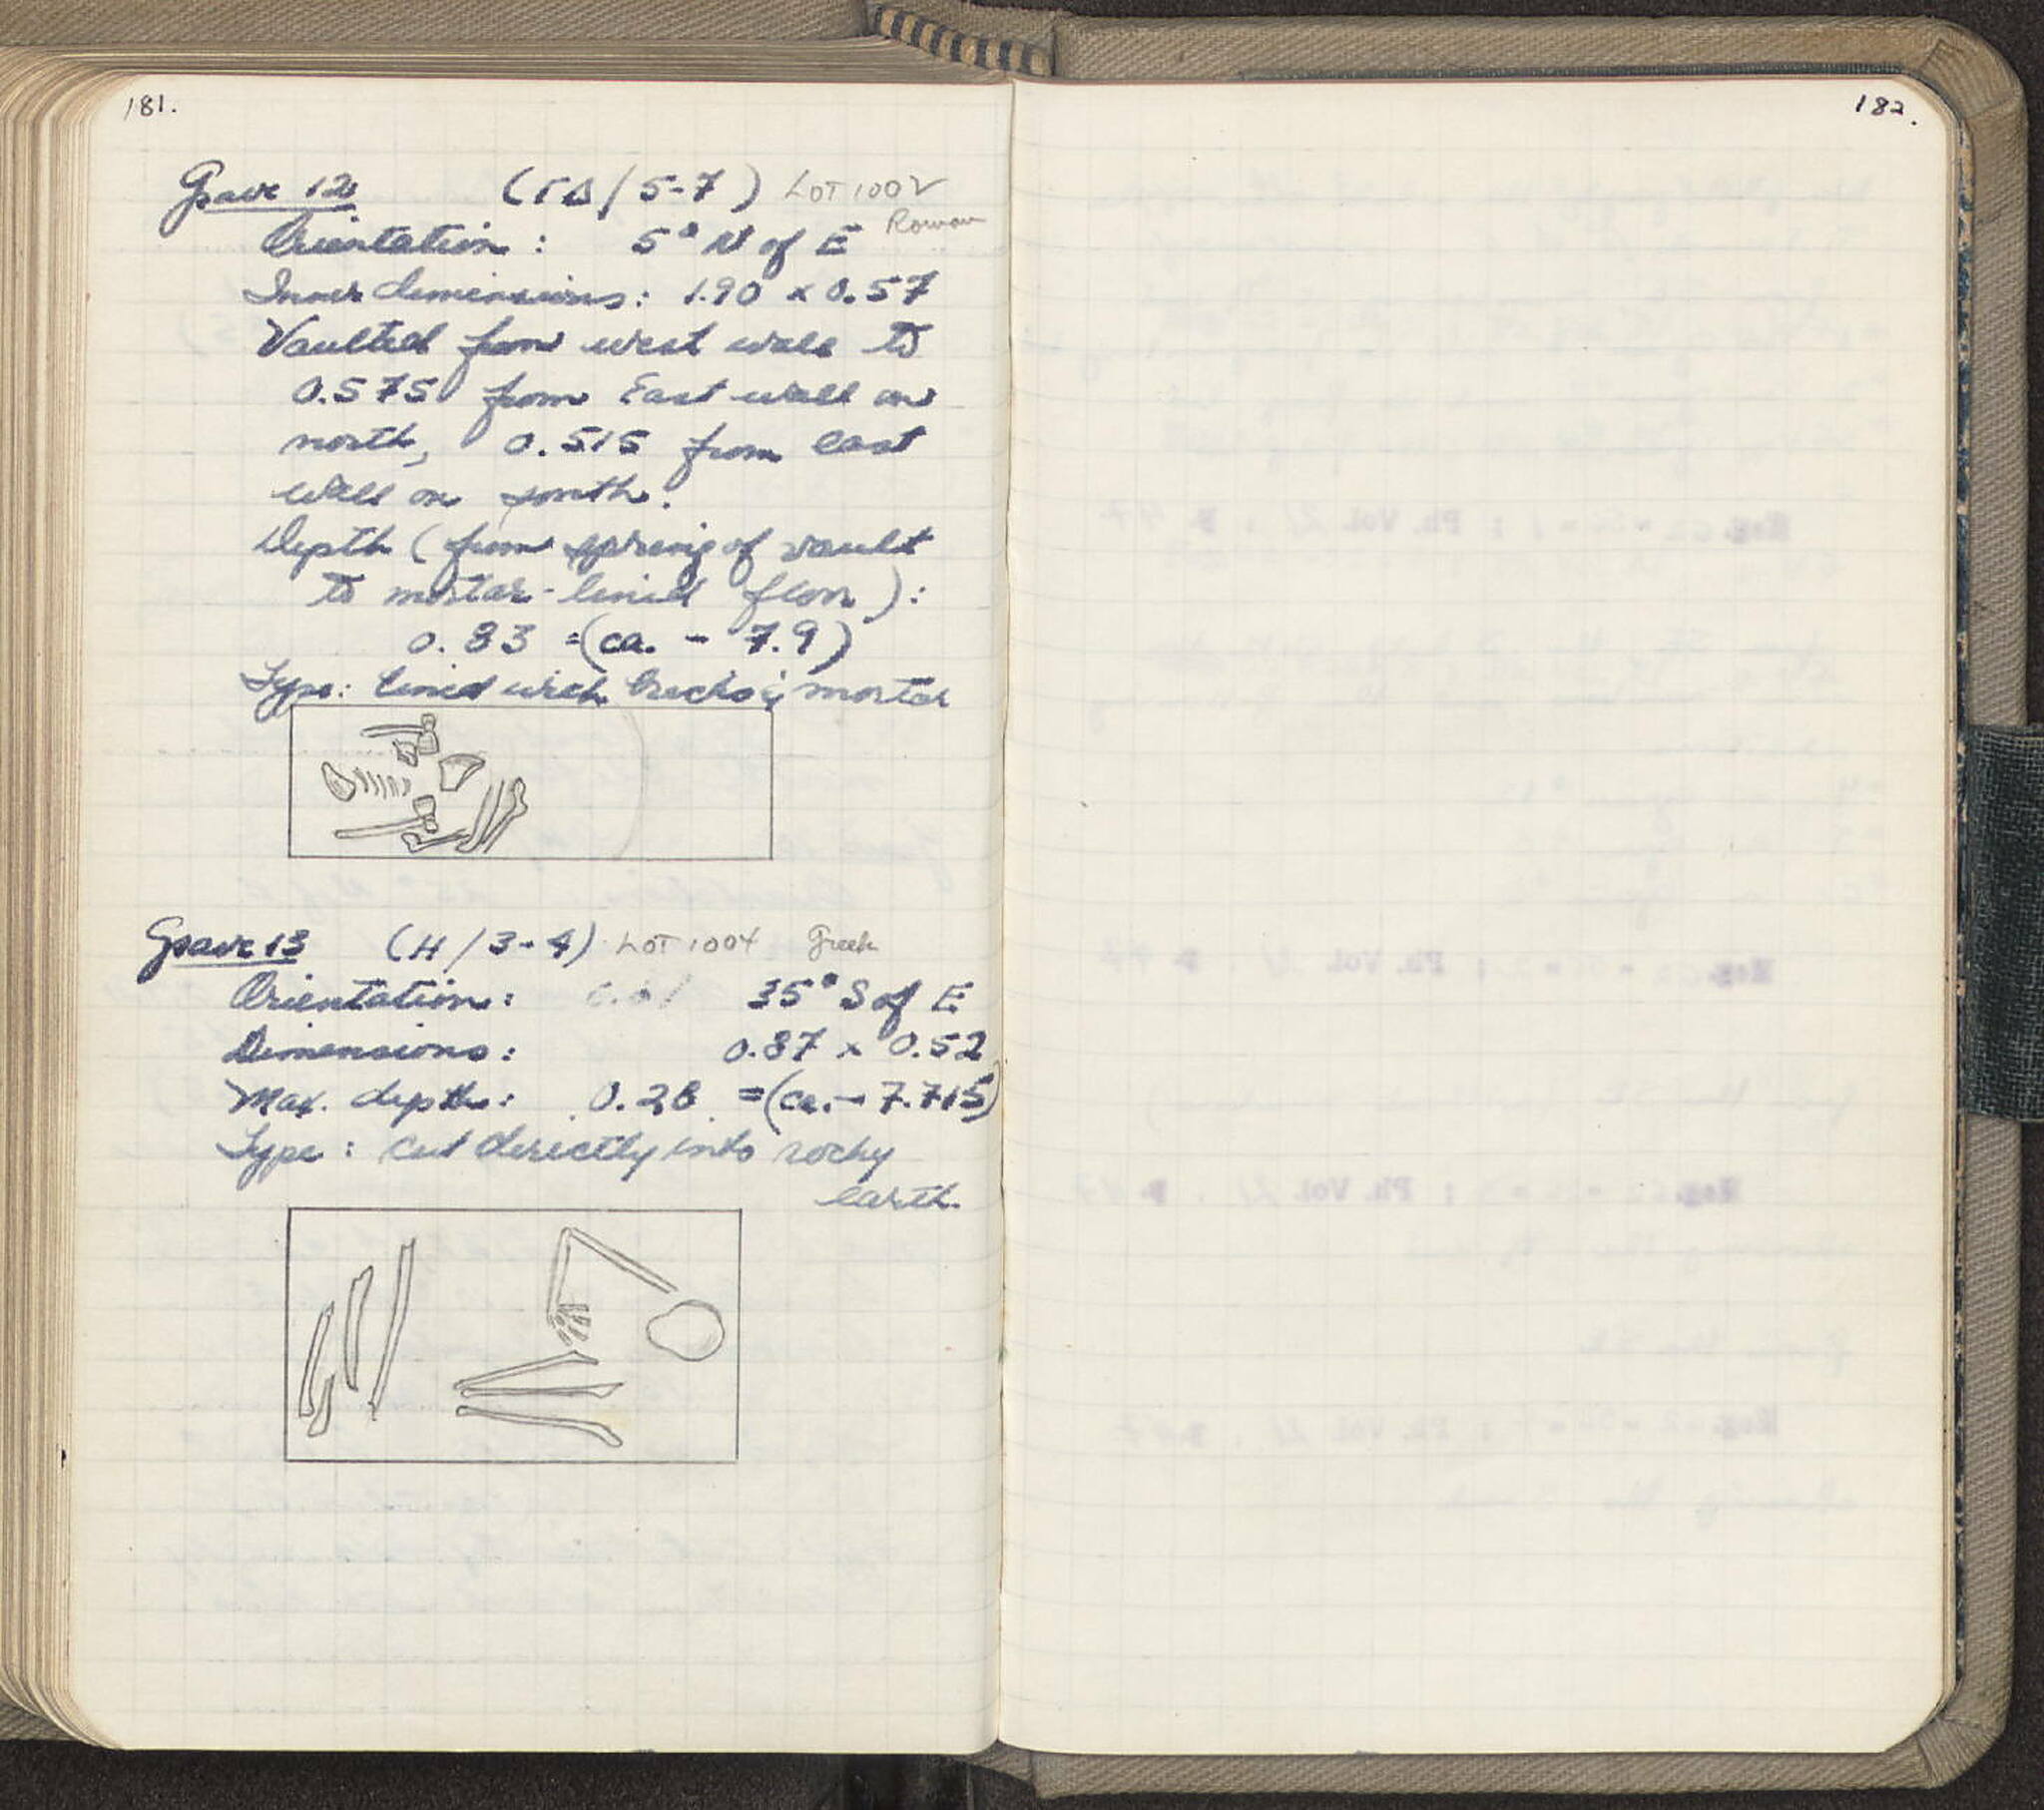 181.
Grave 12 (ΓΔ/5-7) LOT 1002
Roman
Orientation: 5° N of E
Inner dimensions: 1.90 x 0.57
Vaulted from west wall to
0.575 from East wall on
north, 0.515 from east
wall on south.
Depth (from spring of vault
to mortar-lined floor):
0.83 = (ca. - 7.9)
Type: lined with bricks & mortar
Grave 13 (H/3-4) LOT 1004 Greek
Orientation: 35° S of E
Dimensions: 0.87 x 0.52
Max. depth: 0.28 = (ca. - 7.715)
Type: cut directly into rocky
earth.
182.